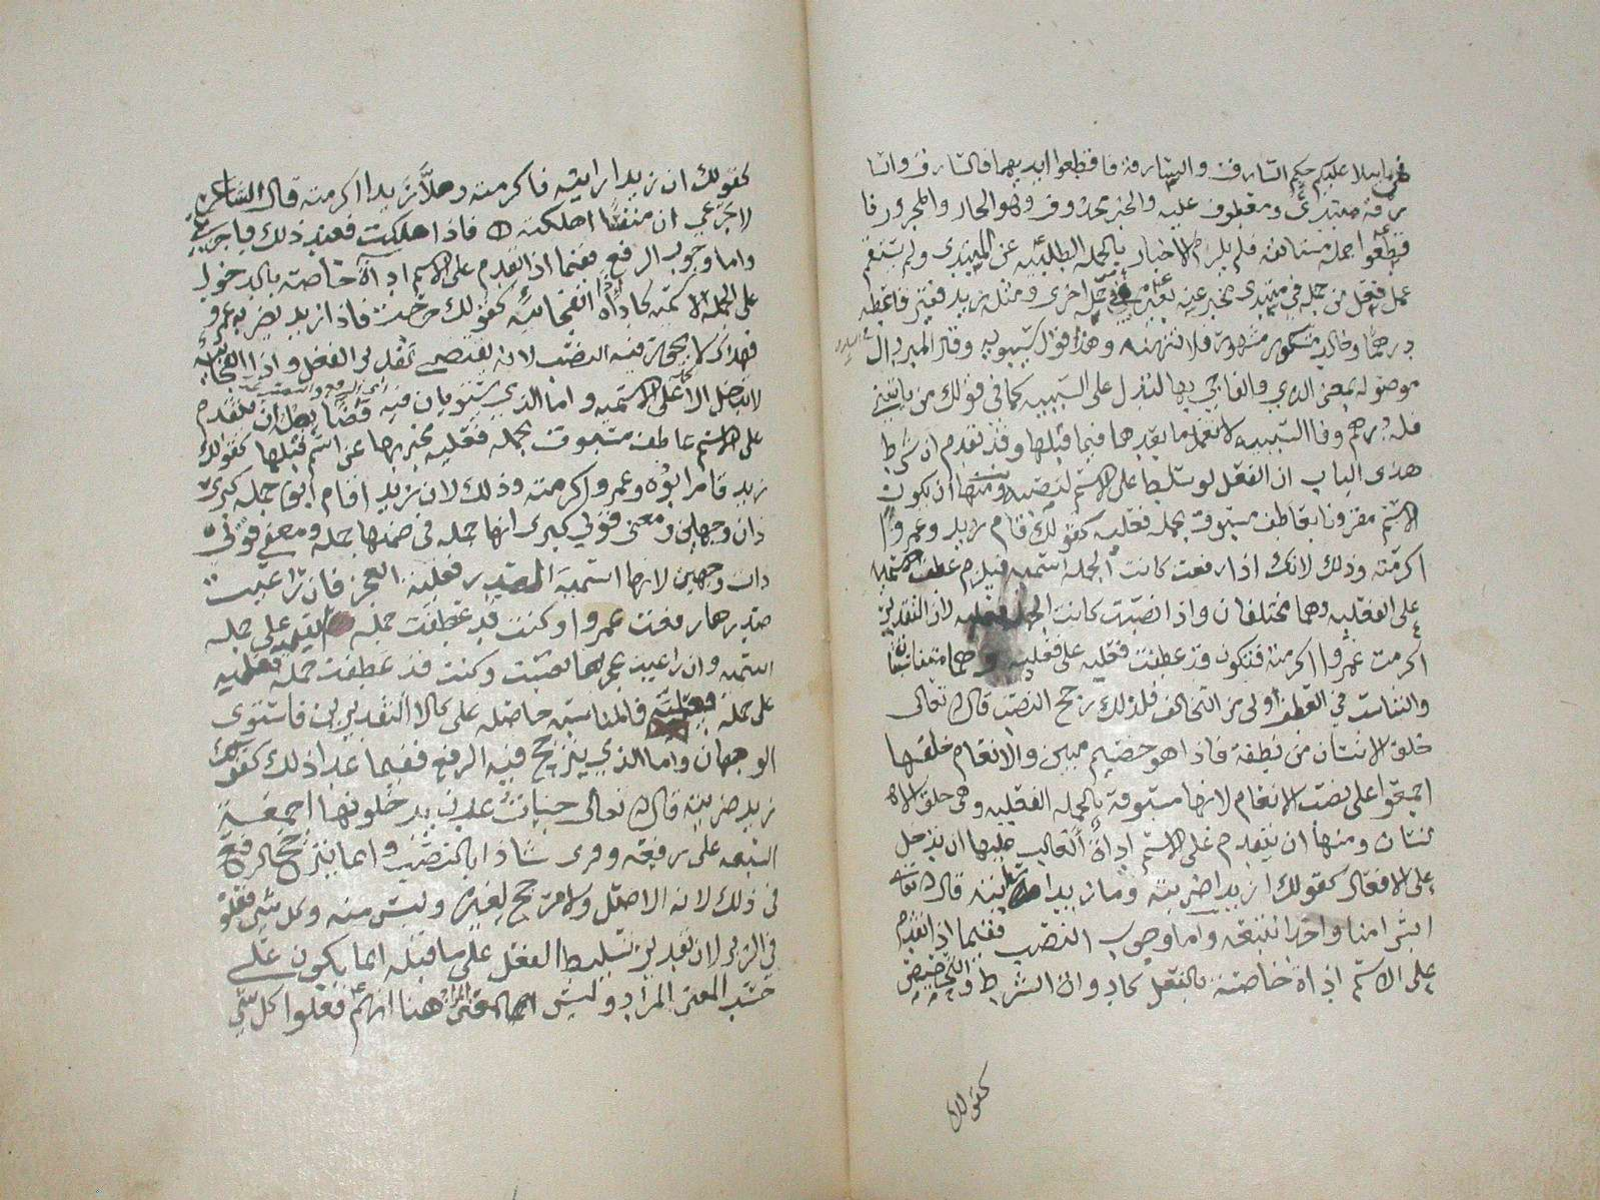 فيما يتلا عليكم حكم السارق والسارقة فاقطعوا ايديهما فالسارق والسا
رقة مبتدى ومعطوف عليه والخبر محذوف وهو الجار والمجرور فا
قطعوا جملة مستانفة فلم يلزم الاخبار بالجملة الطلبية عن المبتدى ولم يستقم
عمل فعل من جملة في مبتدى مخبر عنه بغيره من جملة اخرى ومثله زيد فقير فاعطه
درهما وخالد مكسور فلا تهنه وهذا قول سيبويه وقال المبرد ال
موصولة بمعنى الذي والفا جي بها لتدل على السببيه كما في قولك من ياتيني
فله درهم وفا السببيه لا يعمل ما بعدها فيما قبلها وقد تقدم ان شرط
هذى الباب ان الفعل لو سلط على الاسم لنصبه ومنها ان يكون
الاسم مقرونا بعاطف مسبوق بجملة فعليه كقولك قام زيد وعمروا
اكرمته وذلك لانك اذا رفعت كانت الجملة اسميه فيلزم عطف الاسميه
على الفعليه وهما مختلفان واذا نصبت كانت الجملة فعليه لان التقدير
اكرمت عمروا اكرمته فتكون قد عطفت فعليه على فعليه وهما متناسبان
والتناسب في العطف اولى من التخالف فلذلك رجح النصب قال تعالى
خلق الانسان من نطفة فاذا هو خصيم مبين والانعام خلقها
اجمعوا على نصب الانعام لانها مسبوقة بالجملة الفعليه وهى خلق الا
نسان ومنها ان يتقدم على الاسم اداة الغالب عليها ان تدخل
على الافعال كقولك ازيدا ضربته وما زيدا رايته قال تعالى
ابشرا منا واحدا نتبعه واما وجوب النصب ففيما اذا تقدم
على الاسم اداة خاصة بالفعل كادوات الشرط والتحضيض
كقولك
كقولك ان زيدا رايته فاكرمته وهلا زيدا اكرمته قال الشاعر
لا تجزعي ان منفسا اهلكته فاذا هلكت فعند ذلك فاجزعي
واما وجوب الرفع ففيما اذا تقدم على الاسم اداة خاصة بالدخول
على الجملة الاسمية كاذا الفجائية كقولك خرجت فاذا زيد يضربه عمرو
فهذا لا يجوز فيه النصب لانه يقتضي تقدير الفعل واذا الفجائية
لا تدخل الا على الاسميه واما الذي يستويان فيه فضابطه ان يتقدم
على الاسم عاطف مسبوق بجملة فعليه مخبر بها عن اسم قبلها كقولك
زيد قام ابوه وعمروا اكرمته وذلك لان زيد اقام ابوه جملة كبرى
ذات وجهين ومعنى قولي كبرى انها جملة في ضمنها جملة ومعنى قولي
ذات وجهين لانها اسمية الصدر فعلية العجز فان راعيت
صدرها رفعت عمروا وكنت قد عطفت جملة اسميه على جملة
اسميه وان راعيت عجزها نصبت وكنت قد عطفت جملة فعليه
على جملة فعلية فالمناسبة حاصلة على كلا التقديرين فاستوى
الوجهان واما الذي يترجح فيه الرفع ففيما عدا ذلك كقولك
زيد ضربته قال تعالى جنات عدن يدخلونها اجمعة
السبعه على رفعه وقرى شاذا بالنصب وانما يترجح الرفع
في ذلك لانه الاصل ولا مرجح لغيره وليس منه وكل شي فعلوه
في الزبر لان تقدير تسليط الفعل على ما قبله انما يكون على
حسب المعنى المراد وليس المعنى هنا انهم فعلوا كل شي